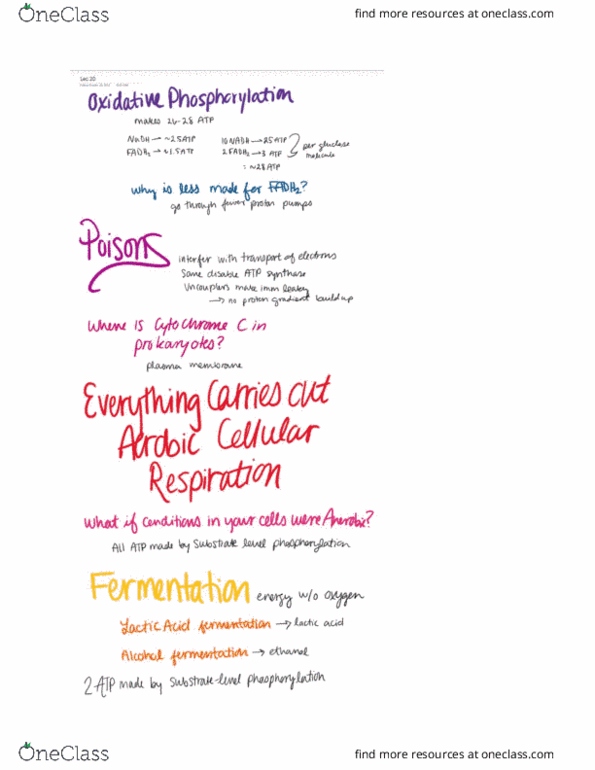 OneClass
find more resources at oneclass.com
Lec 20
Oxidative Phosphorylation
makes 26-28 ATP
NADH → ~2.5ATP
FADH₂ → ~1.5ATP
10 NADH → 25 ATP
2 FADH₂ → 3 ATP
per glucose
molecule
: ~28 ATP
Why is less made for FADH₂?
go through fewer proton pumps
Poisons
interfer with transport of electrons
Some disable ATP synthase
Uncouplers make imm leaky
→ no proton gradient build up
Where is Cytochrome C in
prokaryotes?
plasma membrane
Everything Carries out
Aerobic Cellular
Respiration
What if conditions in your cells were Anerobic?
All ATP made by Substrate level phosphorylation
Fermentation energy w/o oxygen
Lactic Acid fermentation → lactic acid
Alcohol fermentation → ethanol
2 ATP made by Substrate-level phosphorylation
OneClass
find more resources at oneclass.com